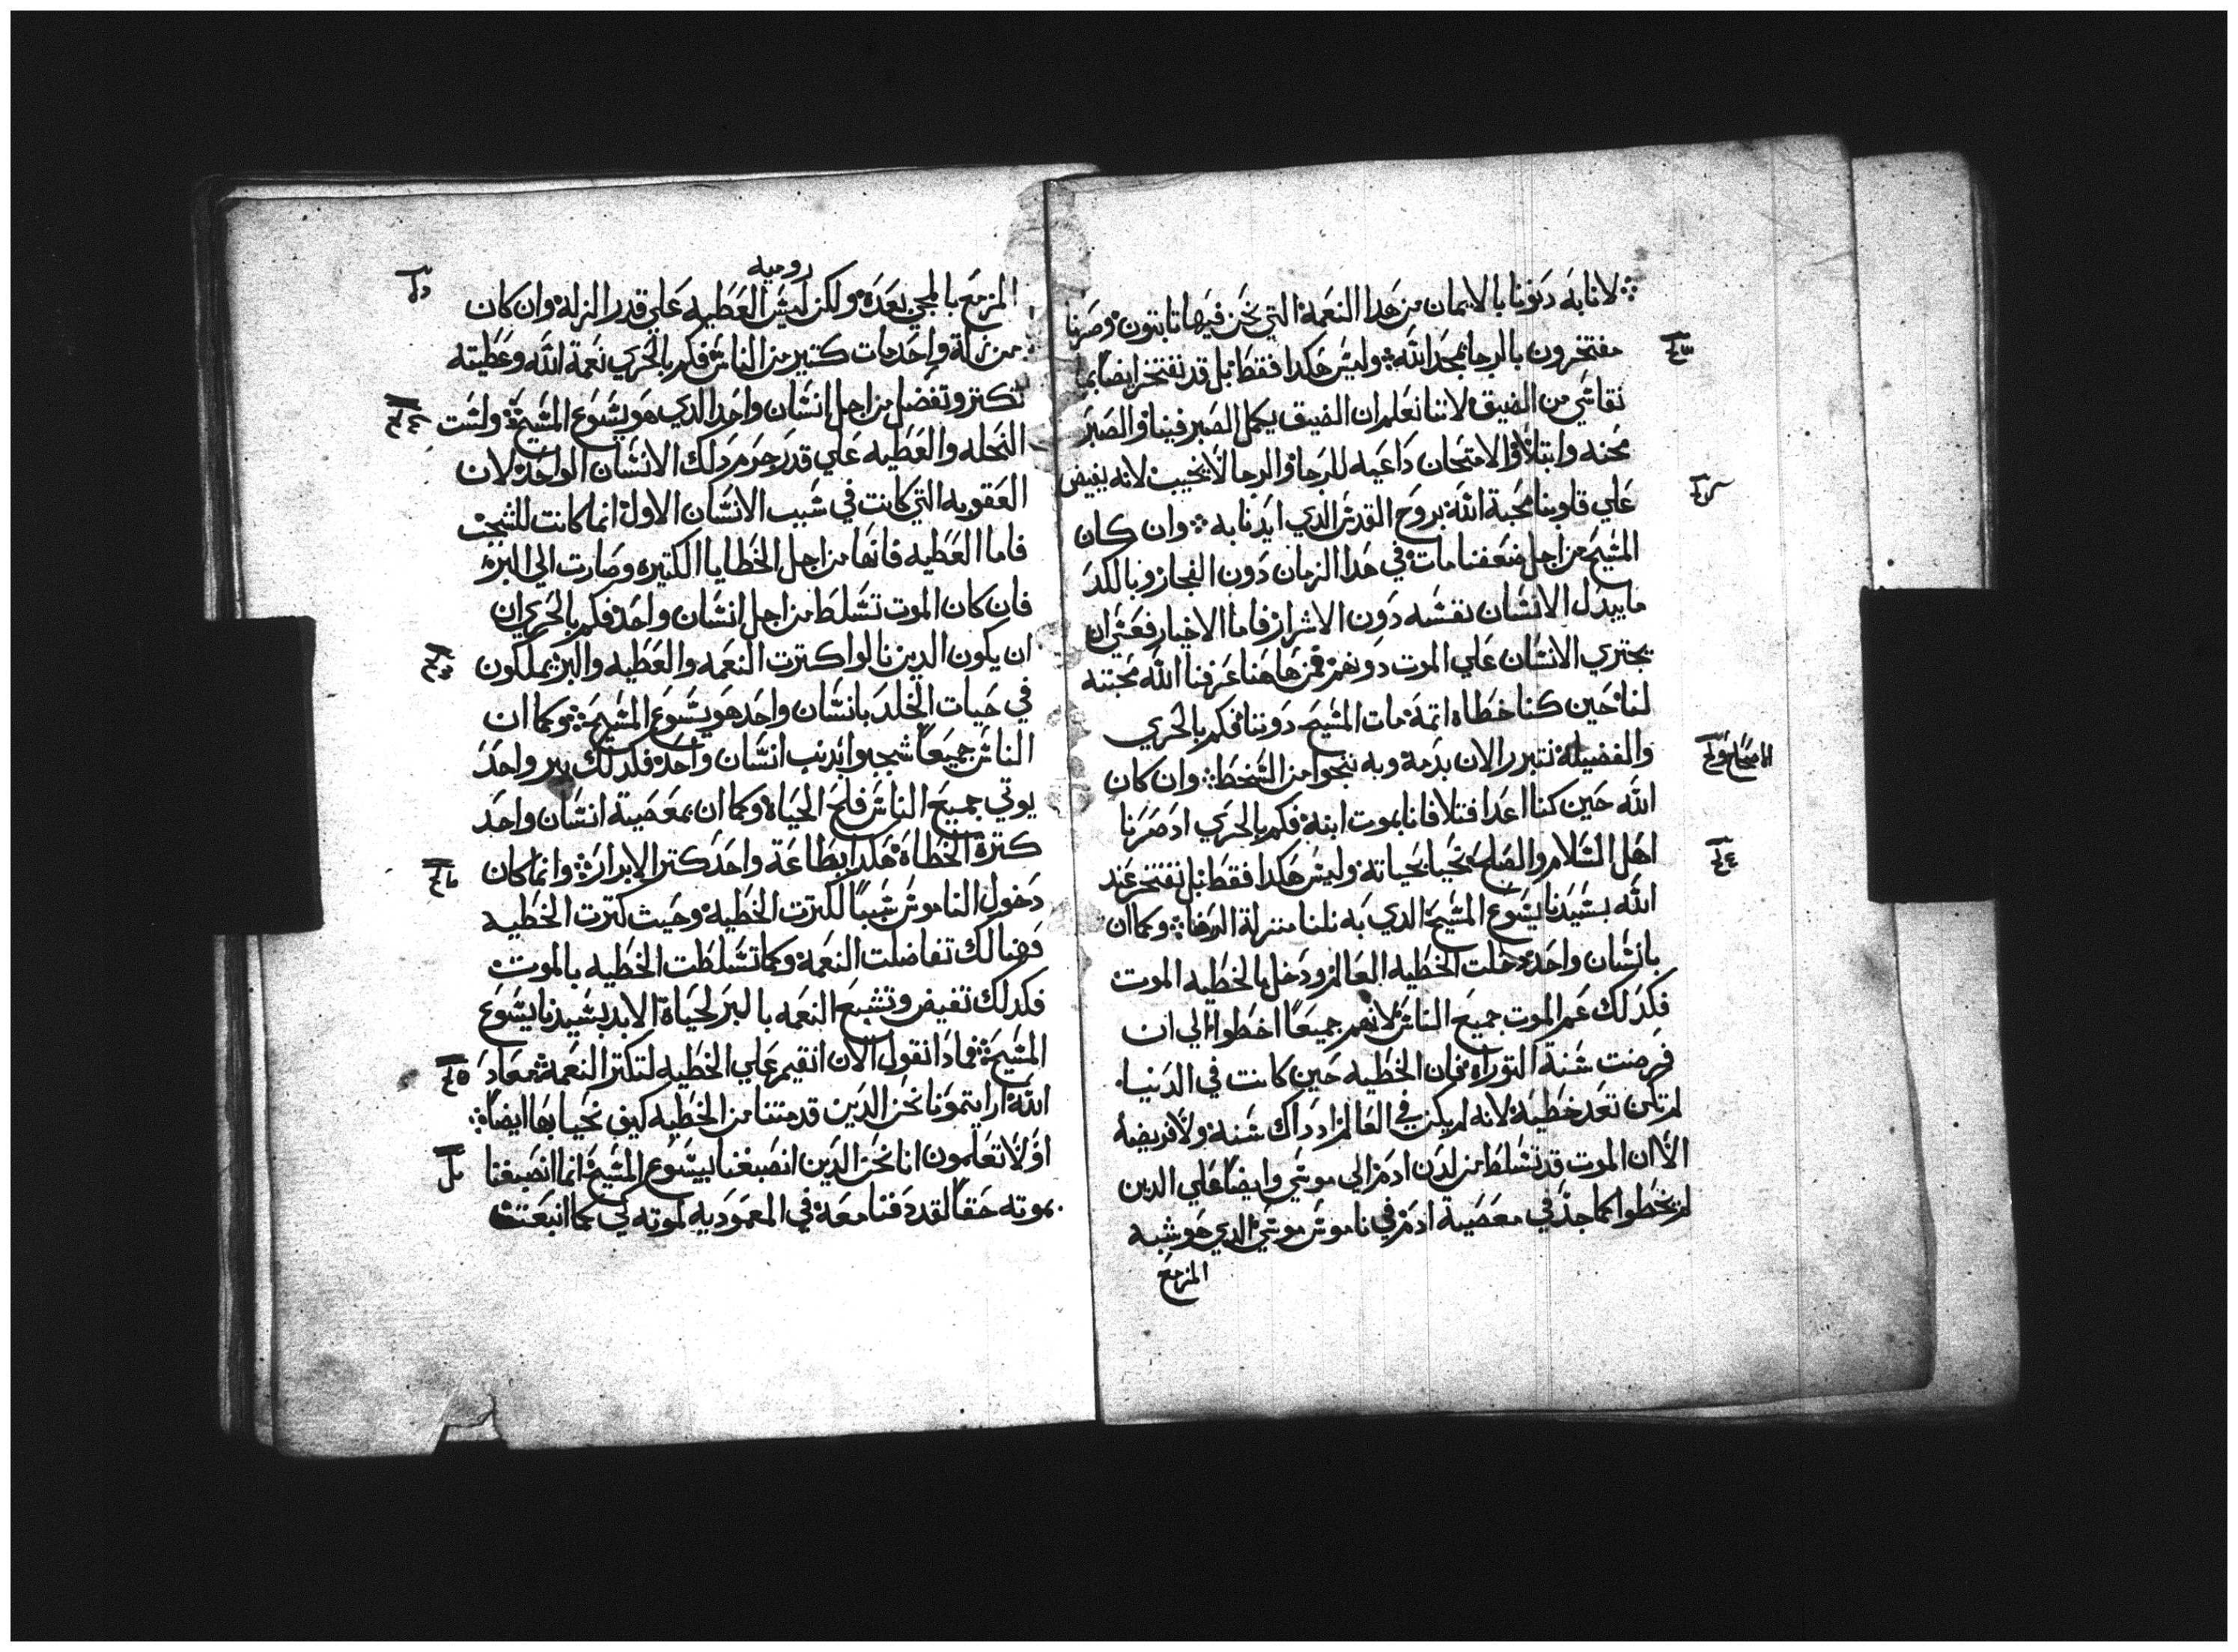 لانا به دنونا بالايمان من هدا النعمة التي نحن فيها تابتون وصرنا
مفتخرون بالرجا بمجد الله وليس هكدا فقط بل قد نفتخر ايضا بما
نقاسي من الضيق لاننا نعلم ان الضيق يكمل الصبر فينا والصبر
محنه وابتلا والامتحان داعيه للرجا والرجا لا يخيب لانه يفيض
علي قلوبنا محبة الله بروح القدس الدي ايدنا به وان كان
المسيح من اجل ضعفنا مات في هدا الزمان دون الفجار وبالكد
ما يبدل الانسان نفسه دون الاشرار فاما الاخيار فعسي ان
يجتري الانسان علي الموت دونهم فمن هاهنا عرفنا الله محبته
لنا حين كنا خطاه اتمة مات المسيح دوننا فكم بالحري
والفضيلة نتبرر الان بدمه وبه ننجوا من السخط وان كان
الله حين كنا اعدا فتلافانا بموت ابنه فكم بالحري اد صرنا
اهل السلام والصلح نحيا بحياته وليس هكدا فقط بل نفتخر عند
الله بسيدنا يسوع المسيح الدي به نلنا منزلة الرضا وكما ان
بانسان واحد دخلت الخطيه العالم ودخل بالخطيه الموت
فكدلك عم الموت جميع الناس لانهم جميعا اخطوا الي ان
فرضت سنة التوراه فان الخطيه حين كانت في الدنيا
لم تكن تعد خطية لانه لم يكن في العالم اد داك سنة ولا فريضه
الا ان الموت قد تسلط من لدن ادم الي موسي وايضا علي الدين
لم يخطوا كما جد في معصية ادم في ناموس موسي الدي هو شبه
المزمع
الاصحاح
روميه
المزمع بالمجي بعده ولكن ليس العطيه علي قدر الزلة وان كان
من زلة واحد مات كتير من الناس فكم بالحري نعمة الله وعطيته
تكتر وتفضل من اجل انسان واحد الدي هو يسوع المسيح وليست
النحله والعطيه علي قدر جرم دلك الانسان الواحد لان
العقوبه التي كانت في سبب الانسان الاول انما كانت للشجب
فاما العطيه فانها من اجل الخطايا الكتيره وصارت الي البر
فان كان الموت تسلط من اجل انسان واحد فكم بالحري ان
ان يكون الدين نالوا كترت النعمه والعطيه والبر يملكون
في حيات الخلد بانسان واحد هو يسوع المسيح وكما ان
الناس جميعا شجبوا بدنب انسان واحد فكدلك ببر واحد
يوتي جميع الناس فلح الحياة وكما ان بمعصية انسان واحد
كترة الخطاه هكدا بطاعة واحد كتر الابرار وانما كان
دخول الناموس سببا لكترت الخطية وحيث كترت الخطيه
فهنالك تفاضلت النعمة وكما تسلطت الخطيه بالموت
فكدلك تفيض وتشبع النعمه بالبر لحياة الابد بسيدنا يسوع
المسيح فمادا نقول الان انقيم علي الخطيه لتكتر النعمة معاد
الله ارايتمونا نحن الدين قد متنا من الخطيه كيف نحيا بها ايضا
اولا تعلمون انا نحن الدين انصبغنا بيسوع المسيح انما انصبغنا
بموته حقا لقد دفنا معه في المعموديه لموته لكي كما انبعت